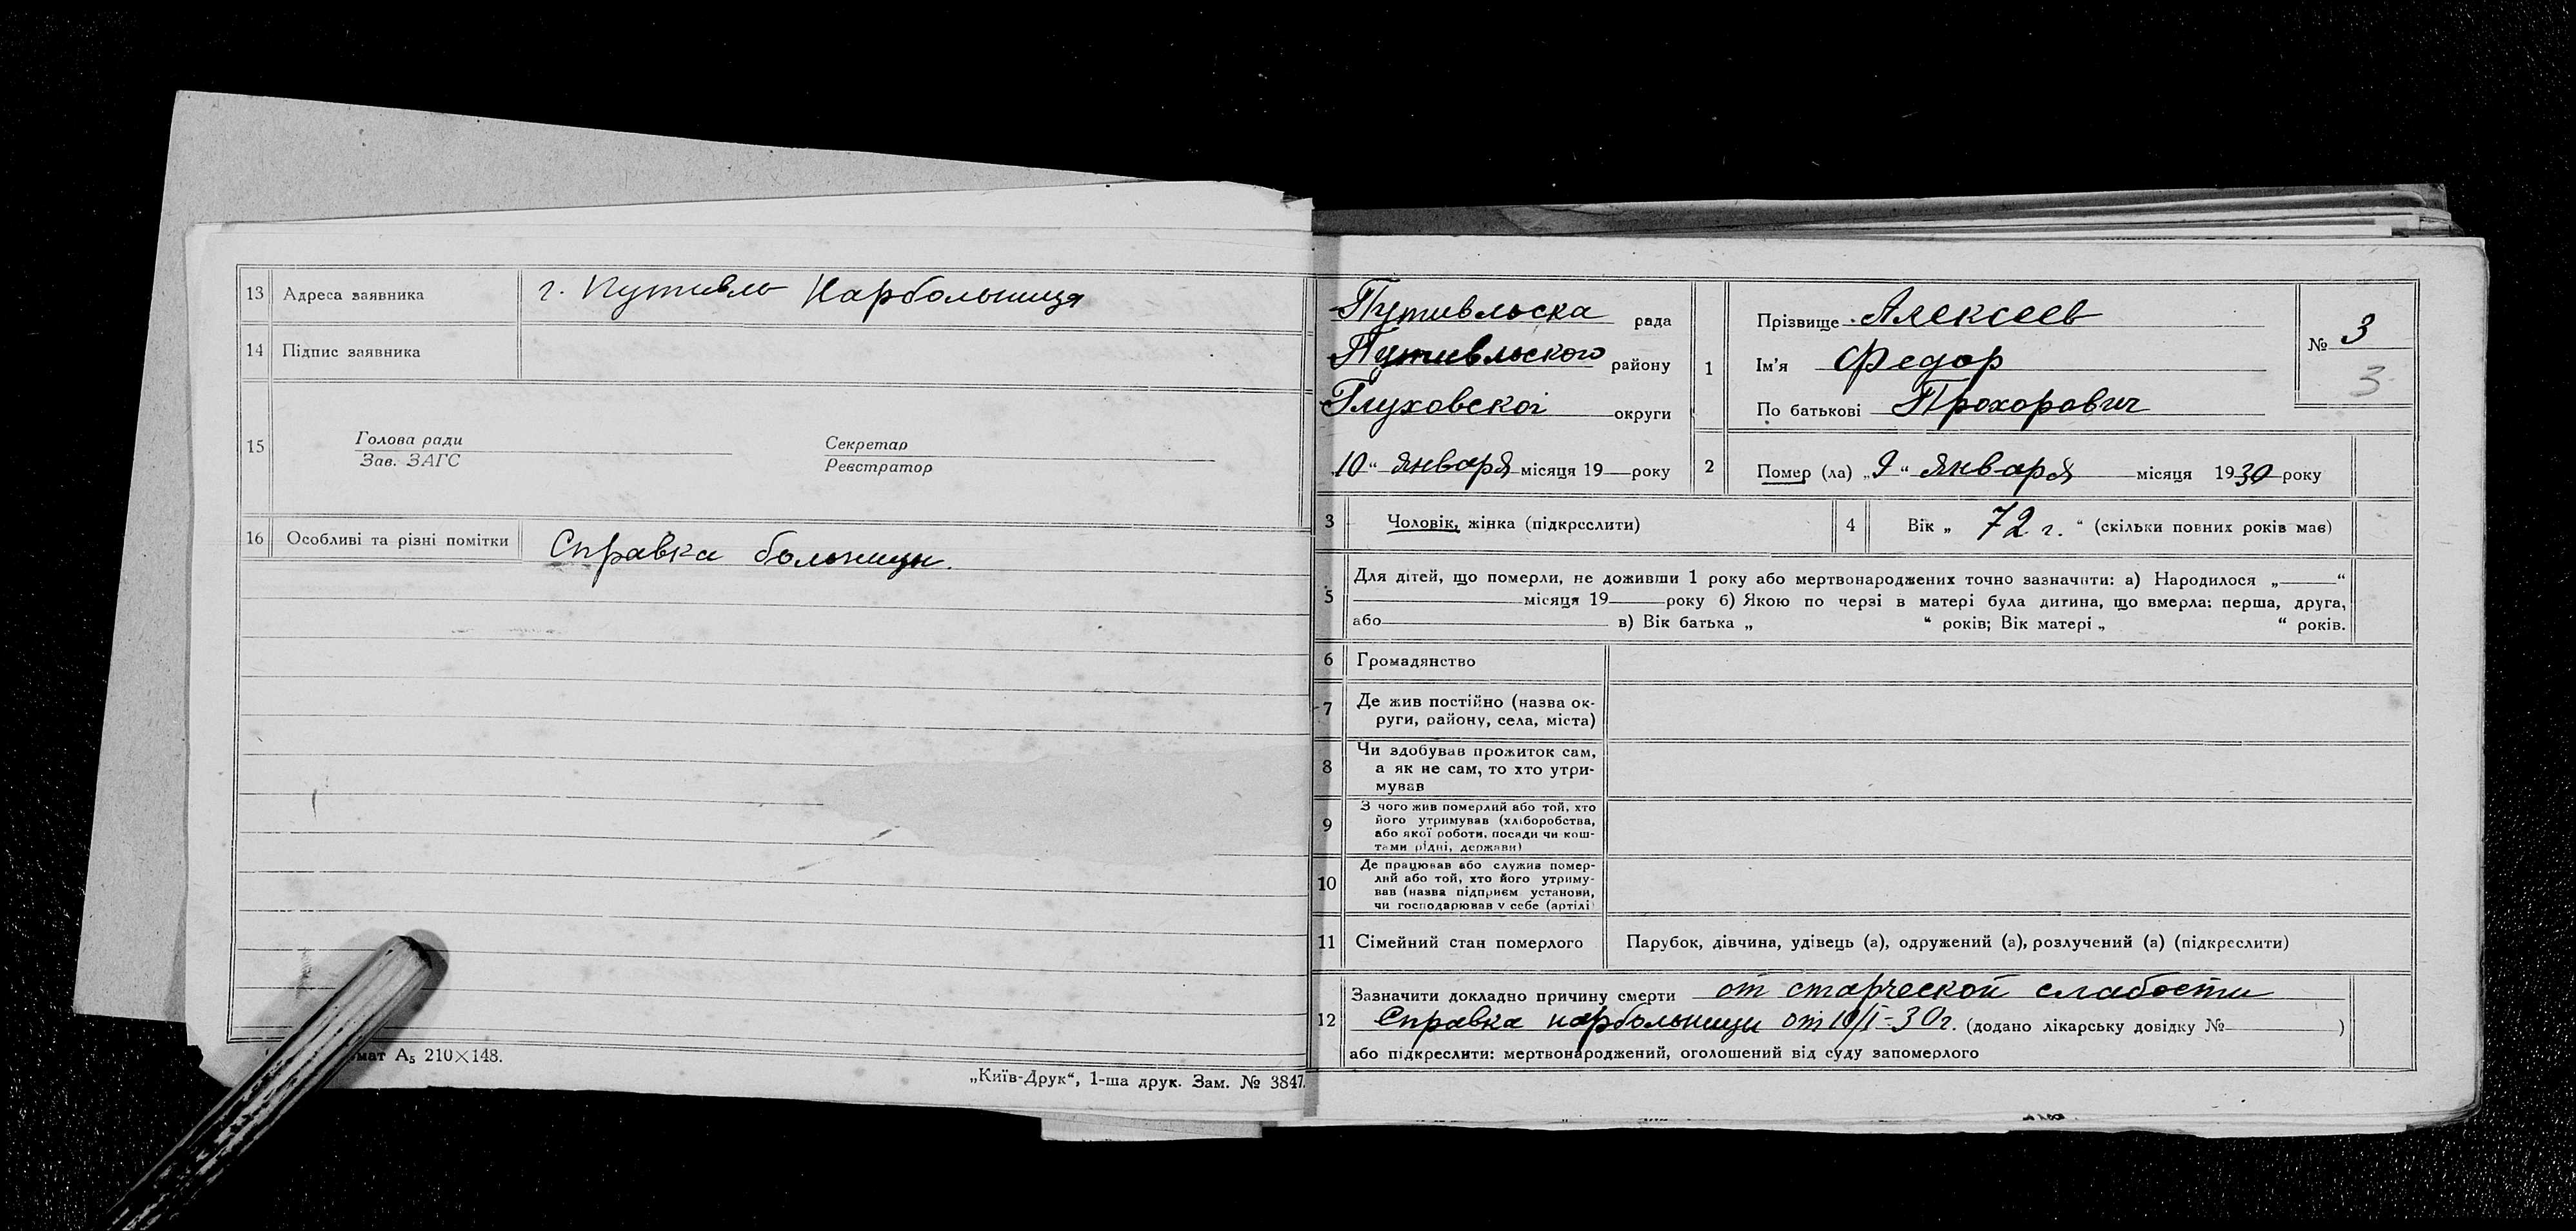 13 Адреса заявника г. Путивль Нарбольница
14 Підпис заявника
15 Голова ради Секретар
Зав. ЗАГС Реєстратор
16 Особливі та різні помітки Справка больницы.
мат А5 210×148.
„Київ-Друк“, 1-ша друк. Зам. № 3847.
Путивльска рада
Путивльского району
Глуховскоі округи
10 “ января місяця 19 року
1 Прізвище Алексеев
Ім'я Федор
По батькові Прохорович
№ 3
3
2 Помер (ла) „ 9 “ января місяця 1930 року
3 Чоловік, жінка (підкреслити)
4 Вік „ 72 г. “ (скільки повних років має)
5 Для дітей, що померли, не доживши 1 року або мертвонароджених точно зазначити: а) Народилося „ “
місяця 19 року б) Якою по черзі в матері була дитина, що вмерла: перша, друга,
або в) Вік батька „ “ років; Вік матері „ “ років.
6 Громадянство
7 Де жив постійно (назва ок-
руги, району, села, міста)
8 Чи здобував прожиток сам,
а як не сам, то хто утри-
мував
9 З чого жив померлий або той, хто
його утримував (хліборобства,
або якої роботи, посади чи кош-
тами рідні, держави)
10 Де працював або служив помер-
лий або той, хто його утриму-
вав (назва підприєм установи,
чи господарював у себе (артілі)
11 Сімейний стан померлого Парубок, дівчина, удівець (а), одружений (а), розлучений (а) (підкреслити)
12 Зазначити докладно причину смерти от старческой слабости
Справка нарбольницы от 10/I-30 г. (додано лікарську довідку № )
або підкреслити: мертвонароджений, оголошений від суду запомерлого